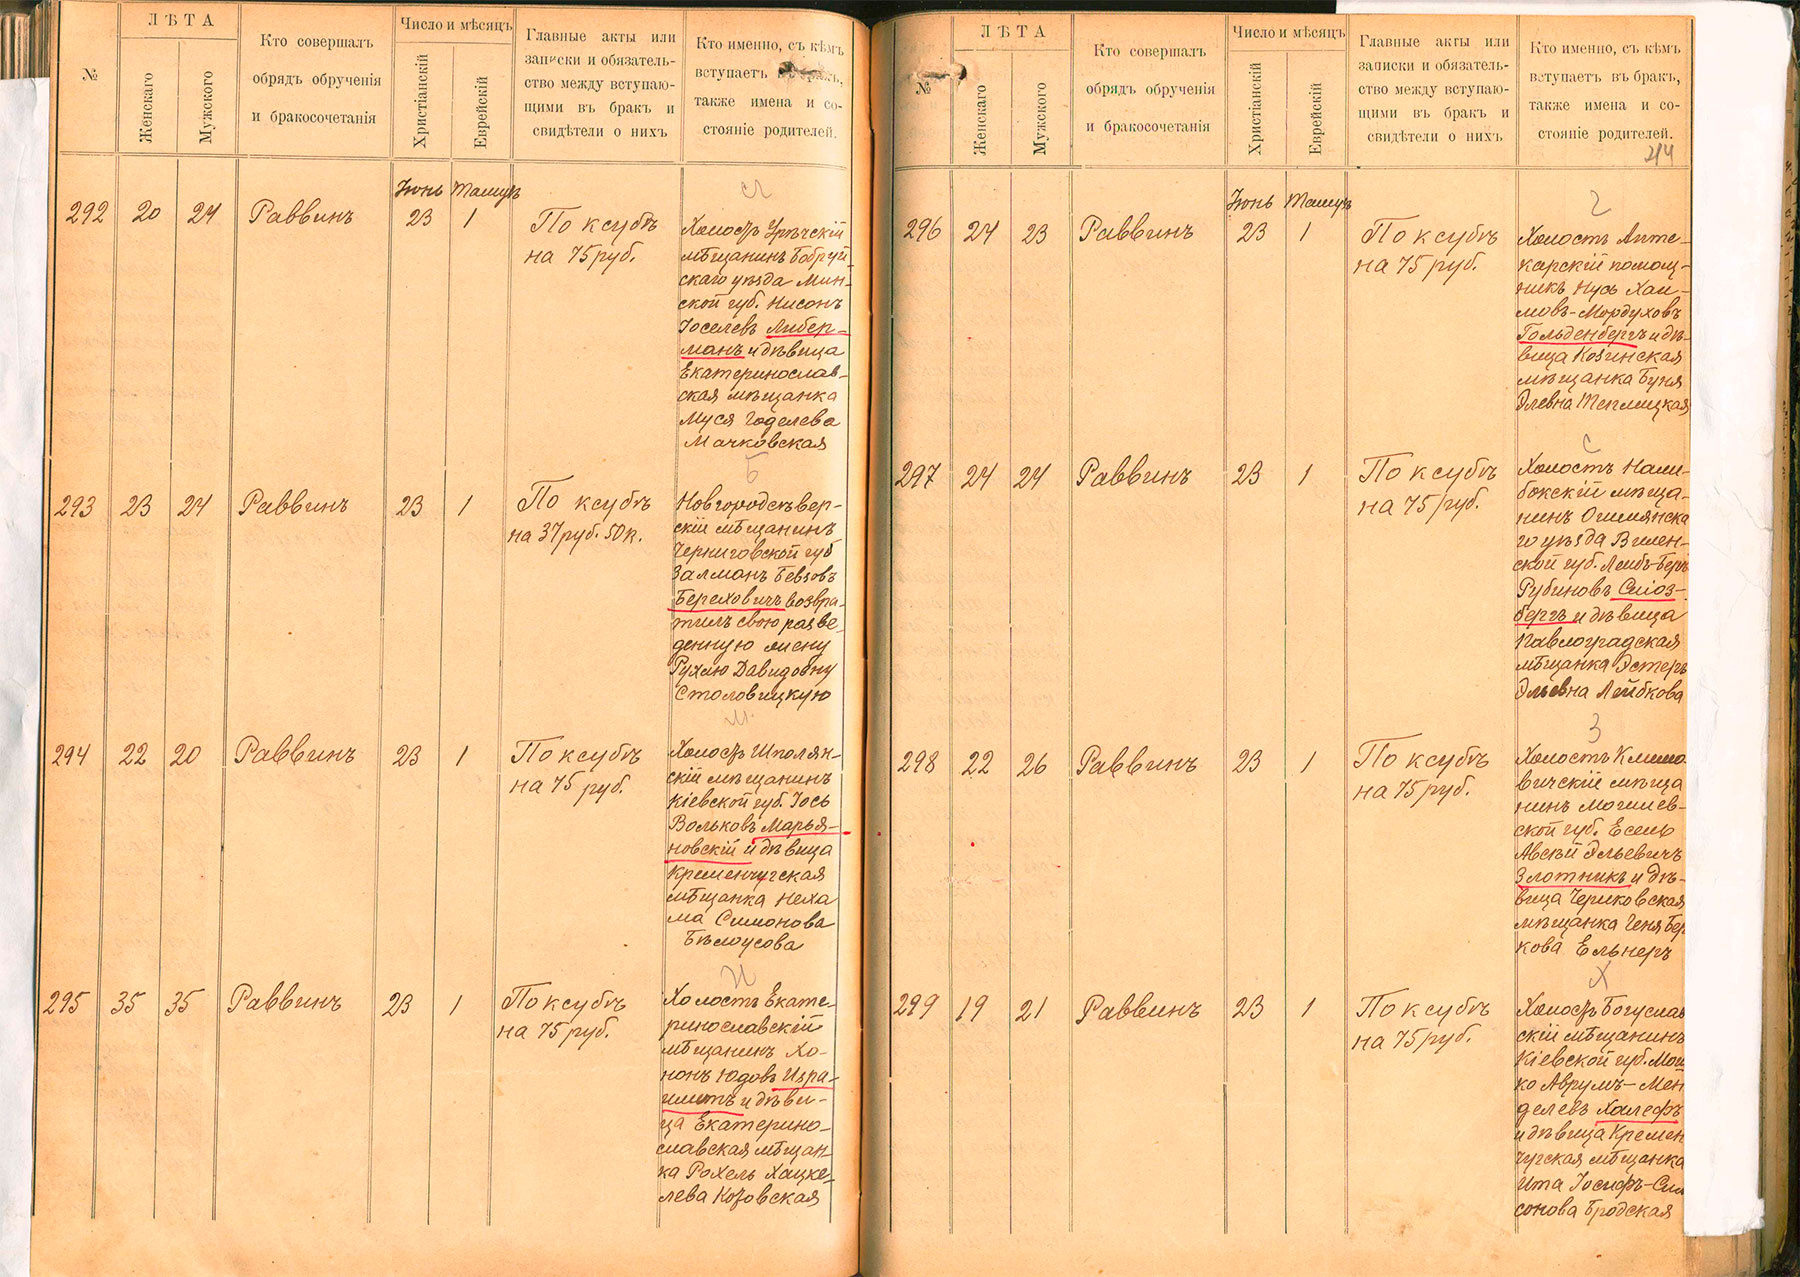 №
ЛѢТА
Женскаго
Мужского
Кто совершалъ
обрядъ обрученія
и бракосочетанія
Число и мѣсяцъ
Христіанскій
Еврейскій
Главные акты или
записки и обязатель-
ство между вступаю-
щими въ бракъ и
свидѣтели о нихъ
Кто именно, съ кѣмъ
вступаетъ въ бракъ,
также имена и со-
стояніе родителей.
Іюнь Тамузъ
292 20 24 Раввинъ 23 1 По ксубѣ
на 75 руб.
Холостъ Урѣчскій
мѣщанинъ Бобруй-
скаго уѣзда Мин-
ской губ. Нисонъ
Іоселевъ Либер-
манъ и дѣвица
Екатеринослав-
ская мѣщанка
Муся Годелева
Мачковская
Б
293 23 24 Раввинъ 23 1 По ксубѣ
на 37 руб. 50 к.
Новгородсѣвер-
скій мѣщанинъ
Черниговской губ
Залманъ Бевзовъ
Береховичъ возвра-
тилъ свою разве-
денную жену
Рухлю Давидовну
Столовицкую
М.
294 22 20 Раввинъ 23 1 По ксубѣ
на 75 руб.
Холостъ Шполян-
скій мѣщанинъ
Кіевской губ. Іось
Вольковъ Марья-
новскій и дѣвица
Кременчугская
мѣщанка Неха
ма Симонова
Бѣлоусова
И
295 35 35 Раввинъ 23 1 По ксубѣ
на 75 руб.
Холостъ Екате-
ринославскій
мѣщанинъ Хо-
нонъ Юдовъ Изра-
илитъ и дѣви-
ца Екатерино-
славская мѣщан-
ка Рохель Хацке-
лева Козовская
№
ЛѢТА
Женскаго
Мужского
Кто совершалъ
обрядъ обрученія
и бракосочетанія
Число и мѣсяцъ
Христіанскій
Еврейскій
Главные акты или
записки и обязатель-
ство между вступаю-
щими въ бракъ и
свидѣтели о нихъ
Кто именно, съ кѣмъ
вступаетъ въ бракъ,
также имена и со-
стояніе родителей.
214
Іюнь Тамузъ
296 24 23 Раввинъ 23 1 По ксубѣ
на 75 руб.
Холостъ Апте-
карскій помощ-
никъ Нусъ Хаи-
мовъ-Мордуховъ
Гольденбергъ и дѣ-
вица Козинская
мѣщанка Буня
Элевна Теплицкая
С
297 24 24 Раввинъ 23 1 По ксубѣ
на 75 руб.
Холостъ Нали-
бокскій мѣща-
нинъ Ошмянска
го уѣзда Вилен-
ской губ. Лейбъ-Беръ
Рубиновъ Сліоз-
бергъ и дѣвица
Павлоградская
мѣщанка Эстеръ
Эльевна Лейбкова
З
298 22 26 Раввинъ 23 1 По ксубѣ
на 75 руб.
Холостъ Климо
вичскій мѣща
нинъ Могилев-
ской губ. Есель
Авсѣй Эльевичъ
Злотникъ и дѣ-
вица Чериковская
мѣщанка Геня Бер
кова Ельнеръ
Х
299 19 21 Раввинъ 23 1 По ксубѣ
на 75 руб.
Холостъ Богуслав
скій мѣщанинъ
Кіевской губ. Мош
ко Аврумъ-Мен
делевъ Халефъ
и дѣвица Кремен
чугская мѣщанка
Ита Іосифъ-Сим
сонова Бродская